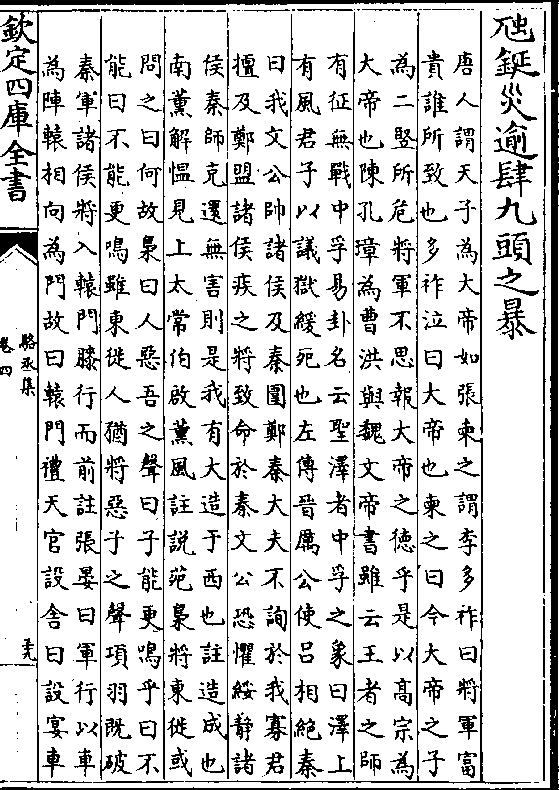 虺鋋災逾肆九頭之暴
唐人謂天子為大帝如張柬之謂李多祚曰將軍富
貴誰所致也多祚泣曰大帝也柬之曰今大帝之子
為二豎所危將軍不思報大帝之德乎是以髙宗為
大帝也陳孔璋為曹洪與魏文帝書雖云王者之師
有征無戰中孚易卦名云聖澤者中孚之象曰澤上
有風君子以議獄緩死也左傳晉厲公使吕相絶秦
曰我文公帥諸侯及秦圍鄭秦大夫不詢於我寡君
擅及鄭盟諸侯疾之將致命於秦文公恐懼綏靜諸
侯秦師克還無害則是我有大造于西也註造成也
南薰解愠見上太常伯啟薰風註說苑梟將東徙或
問之曰何故梟曰人惡吾之聲曰子能更鳴乎曰不
能曰不能更鳴雖東徙人猶將惡子之聲項羽既破
秦軍諸侯將入轅門膝行而前註張晏曰軍行以車
為陣轅相向為門故曰轅門禮天官設舎曰設宴車
欽定四庫全書
駱丞集
卷四